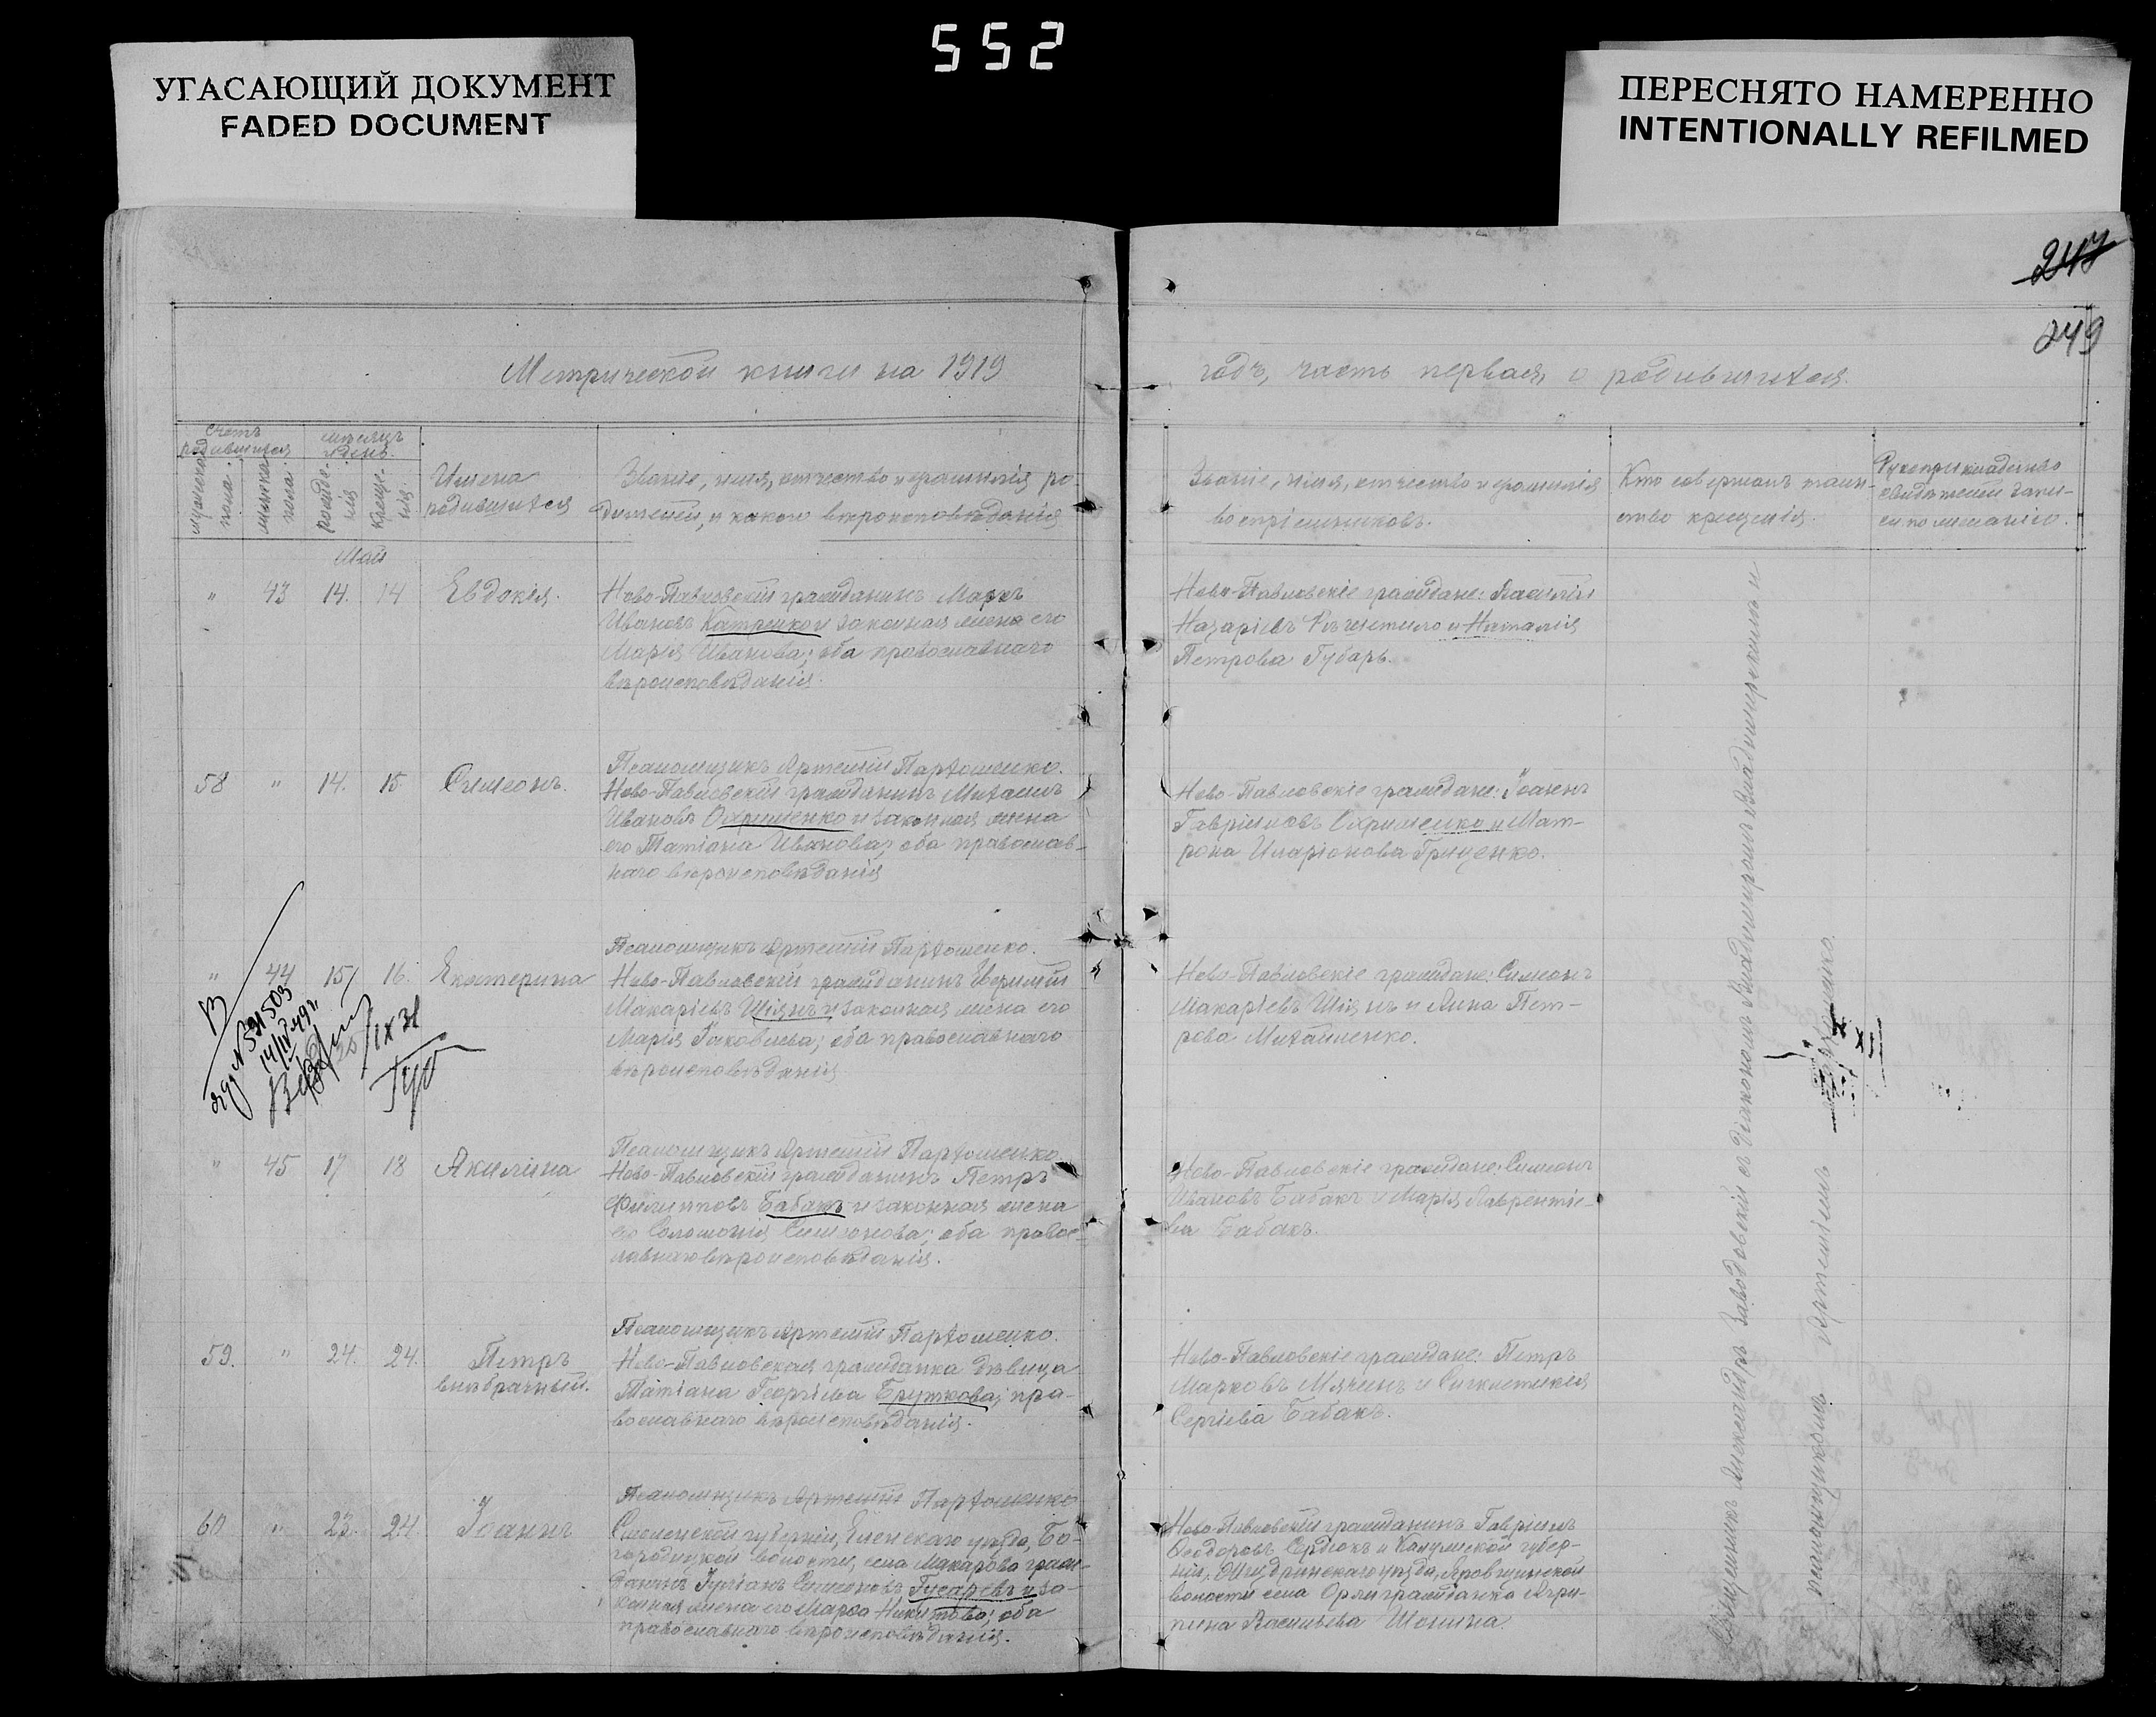 552
УГАСАЮЩИЙ ДОКУМЕНТ
FADED DOCUMENT
ПЕРЕСНЯТО НАМЕРЕННО
INTENTIONALLY REFILMED
247
249
Метрической книги на 1919
годъ, часть первая, о родившихся.
Счетъ родившихся
мѣсяцъ и день.
мужеска пола.
женска пола.
рожде-
нія
креще-
нія.
Имена
родившихся
Званіе, имя, отчество и фамилія ро-
дителей, и какого вѣроисповѣданія
Званіе, имя, отчество и фамилія
воспріемниковъ.
Кто совершалъ таин-
ство крещенія.
Рукоприкладство
свидѣтелей запи-
си по желанію.
Май
" 43 14. 14 Евдокія.
Ново-Павловскій гражданинъ Маркъ
Ивановъ Катренко и законная жена его
Марія Иванова; оба православнаго
вѣроисповѣданія.
Ново-Павловскіе граждане: Василій
Назаріевъ Рѣшетило и Наталія
Петрова Губарь.
Псаломщикъ Артемій Пархоменко.
58 " 14. 15 Симеонъ.
Ново-Павловскій гражданинъ Михаилъ
Ивановъ Охрименко и законная жена
его Татіана Иванова; оба православ-
наго вѣроисповѣданія
Ново-Павловскіе граждане: Іоаннъ
Гавріиловъ Охрименко и Мат-
рона Иларіонова Гриценко.
Псаломщикъ Артемій Пархоменко.
" 44 15 16. Екатерина
Ново-Павловскій гражданинъ Ефимій
Макаріевъ Шіянъ и законная жена его
Марія Іаковлева; оба православнаго
вѣроисповѣданія
Ново-Павловскіе граждане: Симеонъ
Макаріевъ Шіянъ и Анна Пет-
рова Михайленко.
14/IV 49 г.
IX 31
Псаломщикъ Артемій Пархоменко
" 45 17 18 Акилина
Ново-Павловскій гражданинъ Петръ
Филипповъ Бабакъ и законная жена
его Соломонія Симеонова; оба правос-
лавнаго вѣроисповѣданія.
Ново-Павловскіе граждане: Симеонъ
Ивановъ Бабакъ и Марія Лаврентіе-
ва Бабакъ.
Псаломщикъ Артемій Пархоменко.
59. " 24. 24. Петръ
внѣбрачный.
Ново-Павловская гражданка дѣвица
Татіана Георгіева Бруткова; пра-
вославнаго вѣроисповѣданія.
Ново-Павловскіе граждане: Петръ
Марковъ Мячинъ и Синклитикія
Сергіева Бабакъ.
Псаломщикъ Артемій Пархоменко
60 " 23. 24. Іоаннъ
Смоленской губерніи, Еленскаго уѣзда, Бо-
городицкой волости, села Макарова граж-
данинъ Іуліанъ Симеоновъ Гусаревъ и за-
конная жена его Марѳа Никитова; оба
православнаго вѣроисповѣданія.
Ново-Павловскій гражданинъ Гавріилъ
Ѳеодоровъ Сердюкъ и Калужской губер-
ніи, Жиздринскаго уѣзда,
волости села Орли гражданка Агри-
пина Васильева Шонина.
Священникъ Александръ Заводовскій съ діакономъ Владиміромъ Владимірскимъ и
псаломщикомъ Артеміемъ Пархоменко.